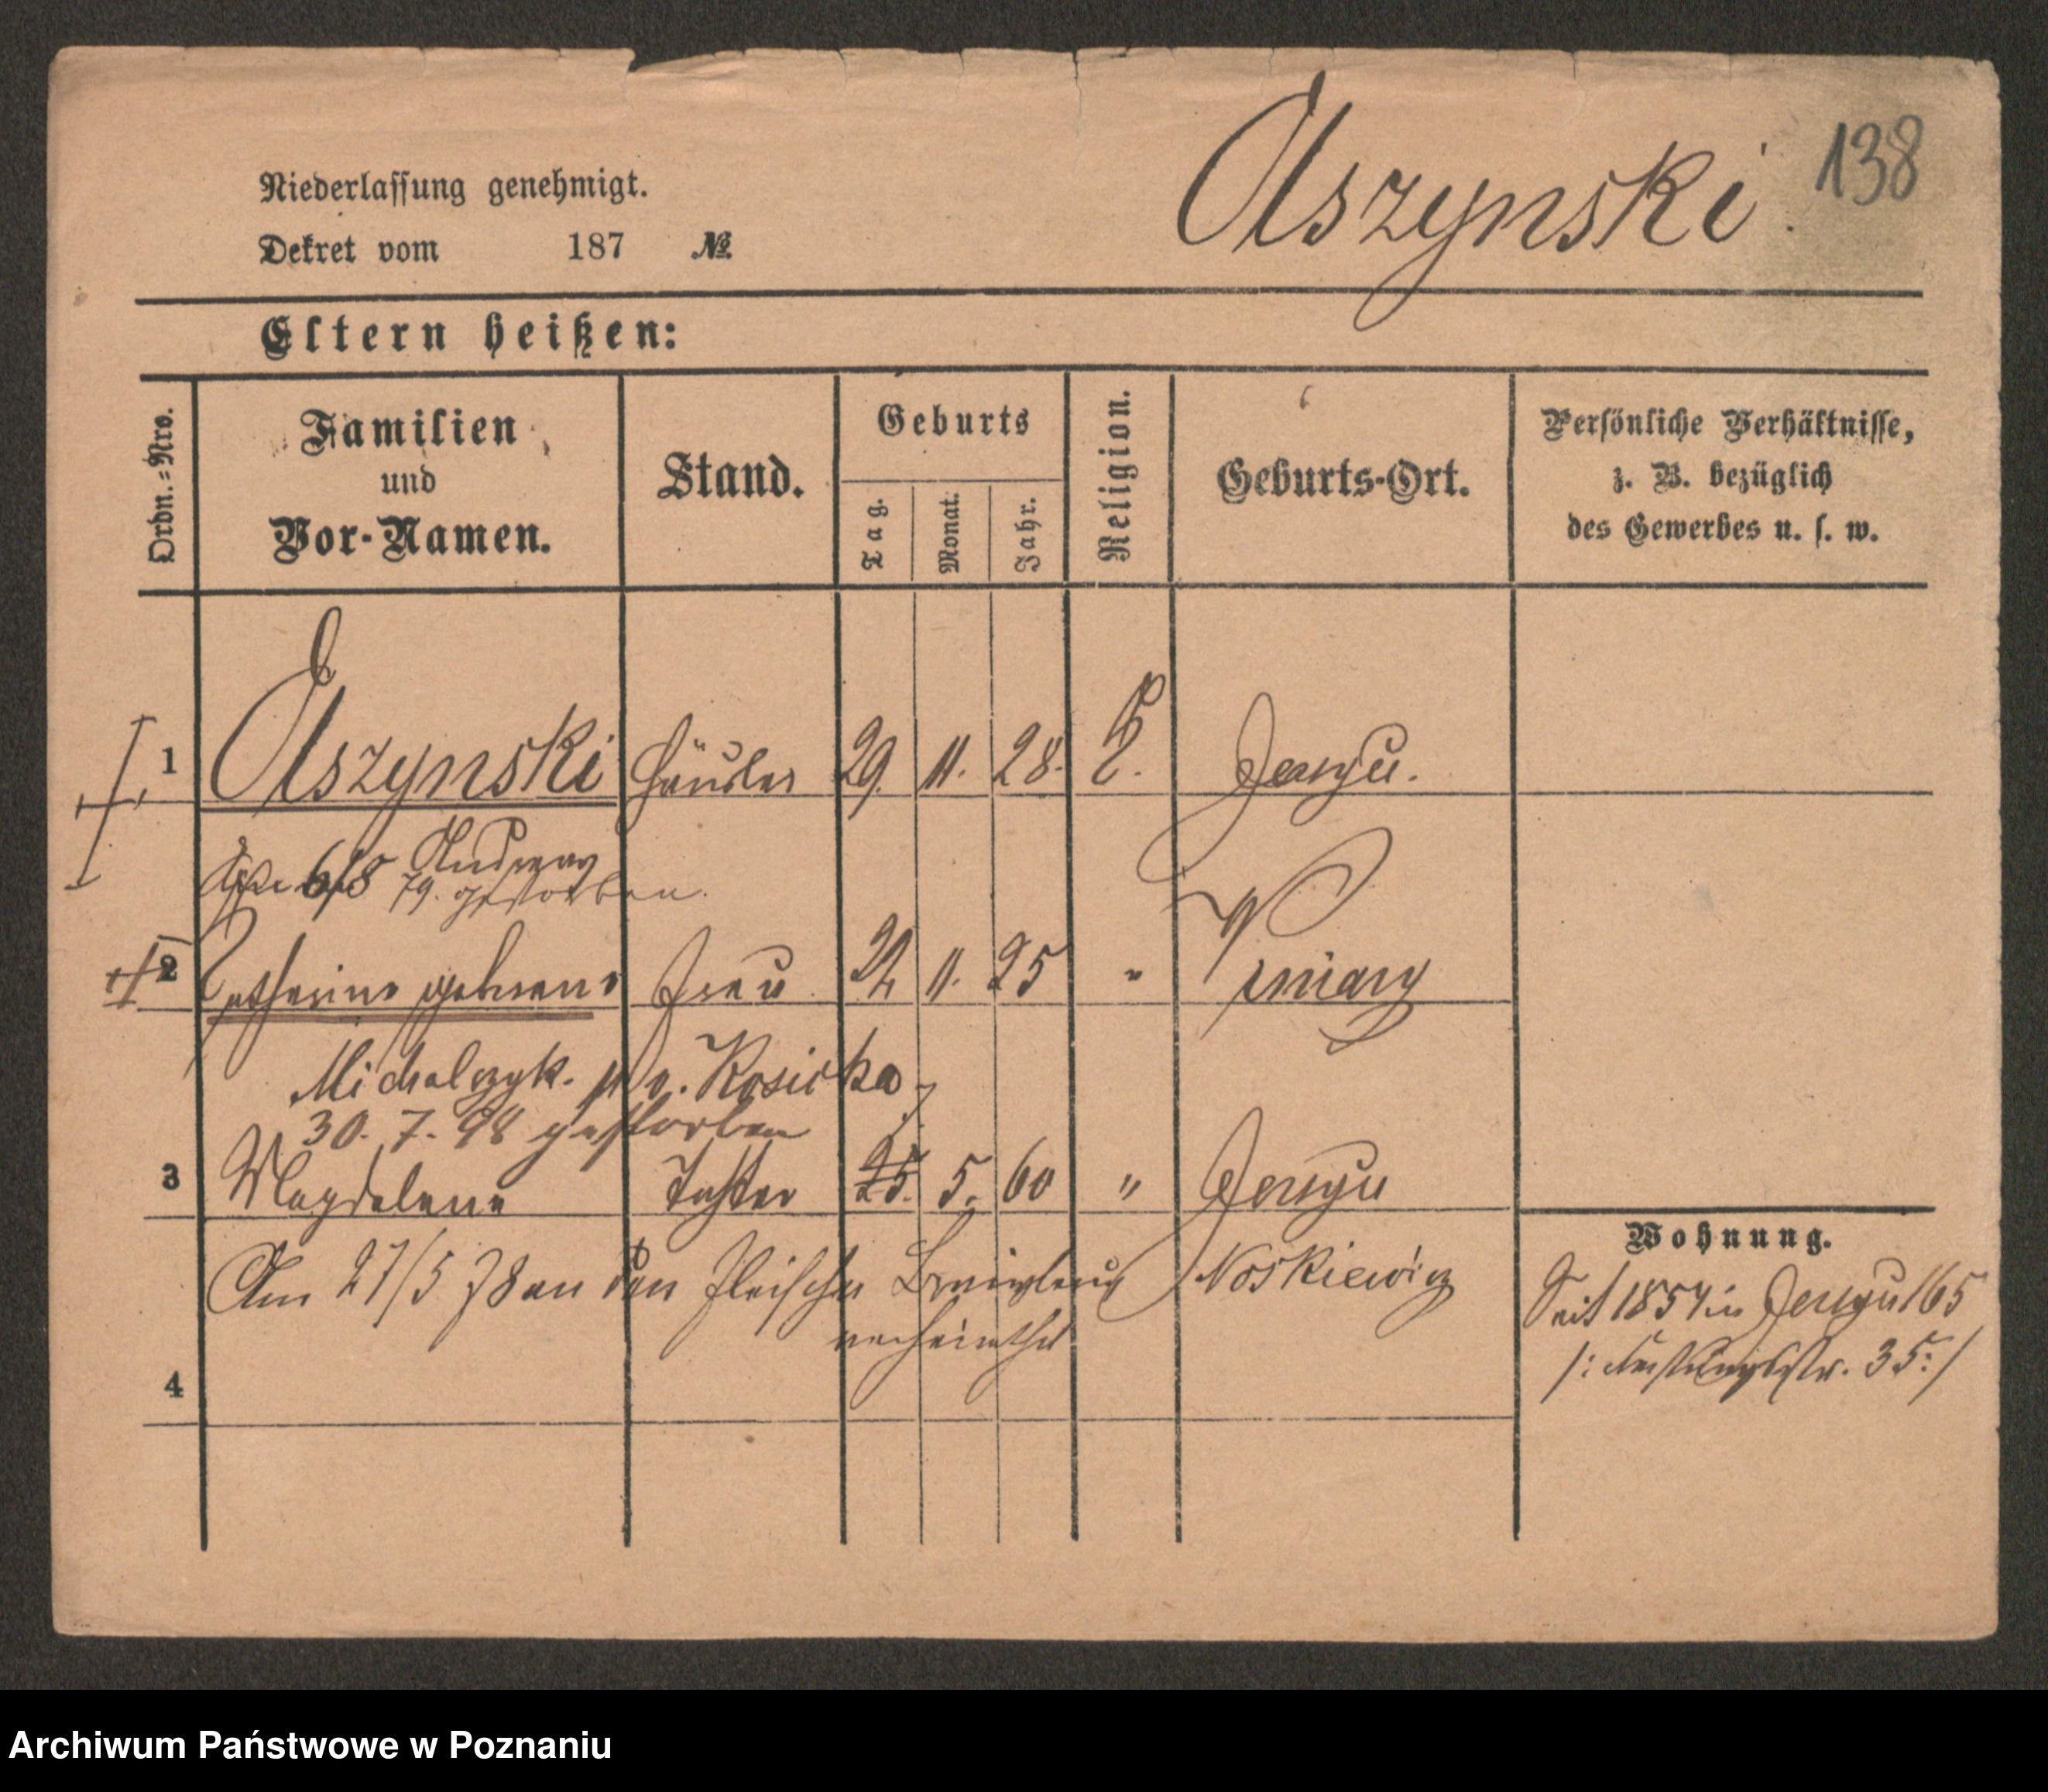 Olszynski
138
Niederlassung genehmigt.
Dekret vom 187 No.
Eltern heißen:
Ordn.=Nro.
Familien
und
Vor-Namen.
Stand.
Geburts
Tag.
Monat.
Jahr.
Religion.
Geburts-Ort.
Persönliche Verhältnisse,
z. B. bezüglich
des Gewerbes u. s. w.
1 Olszynski Häusler 29. 11. 28. K. Jersyce.
Andreas
6/8 79. gestorben.
2 Catharine geborene Frau 22 11. 25 "
Michalczyk. p. v. Kosicka
30. 7. 98 gestorben
3 Magdalene Tochter 25. 5. 60 " Jersyce
Am 27/5 78 an den Fleischer Noskiewicz
verheirathet
4
Wohnung.
Seit 1854 in Jersyce 165
35:/
Archiwum Państwowe w Poznaniu